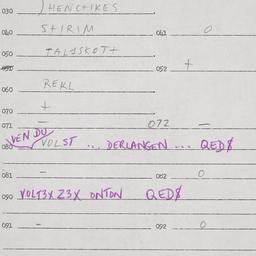 030 JHENCHKES
040 STIRIM 041 O
050 TALJSKOTT
051 052 +
060 REKL
070 +
071 – 072 –
VEN DU
080 VOLST ... DERLANGEN ... QED$
081 – 082 O
090 VOLT3X Z3X ONTON QED$
091 – 092 O